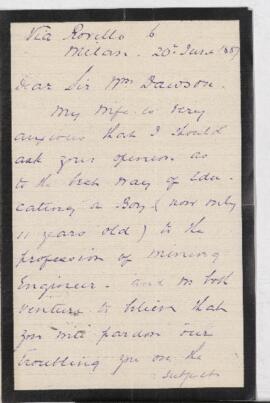 Via Rovello 6
Milan. 20th June 1887
Dear Sir Wm Dawson.
My wife is very
anxious that I should
ask your opinion as
to the best way of edu-
cating a Boy (now only
11 years old) to the
profession of mining
Engineer - and we both
venture to believe that
you will pardon our
troubling you on the
subject